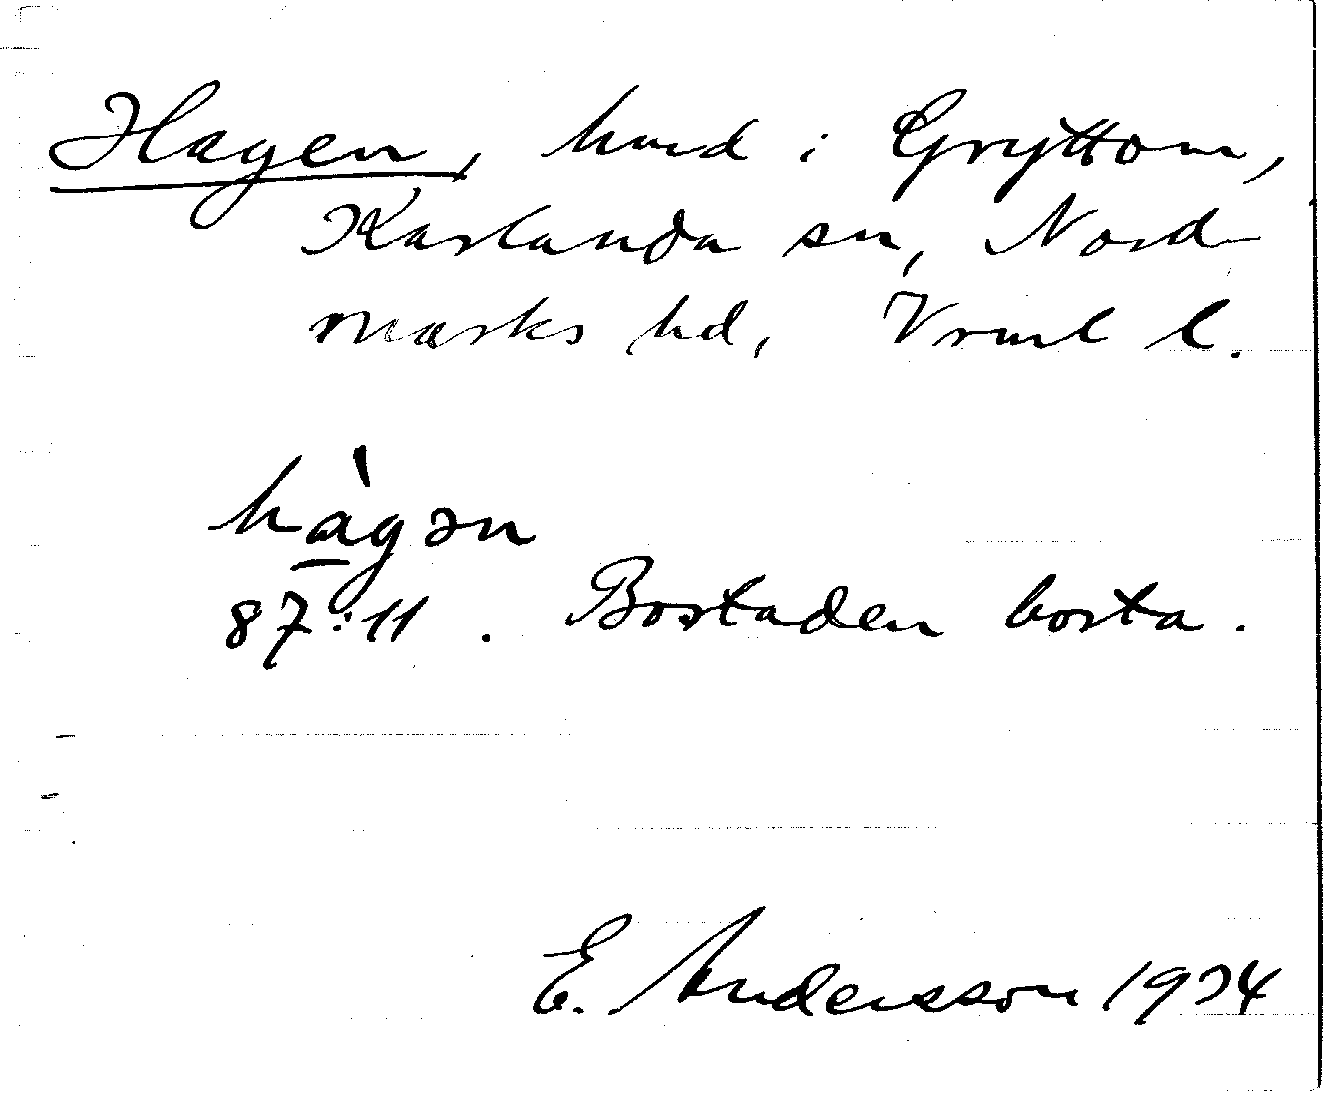 Hagen, hmd i Gryttom,
Karlanda sn, Nord-
marks hd, Vrml l.
hàgən
87:11. Bostaden borta.
E. Andersson 1974